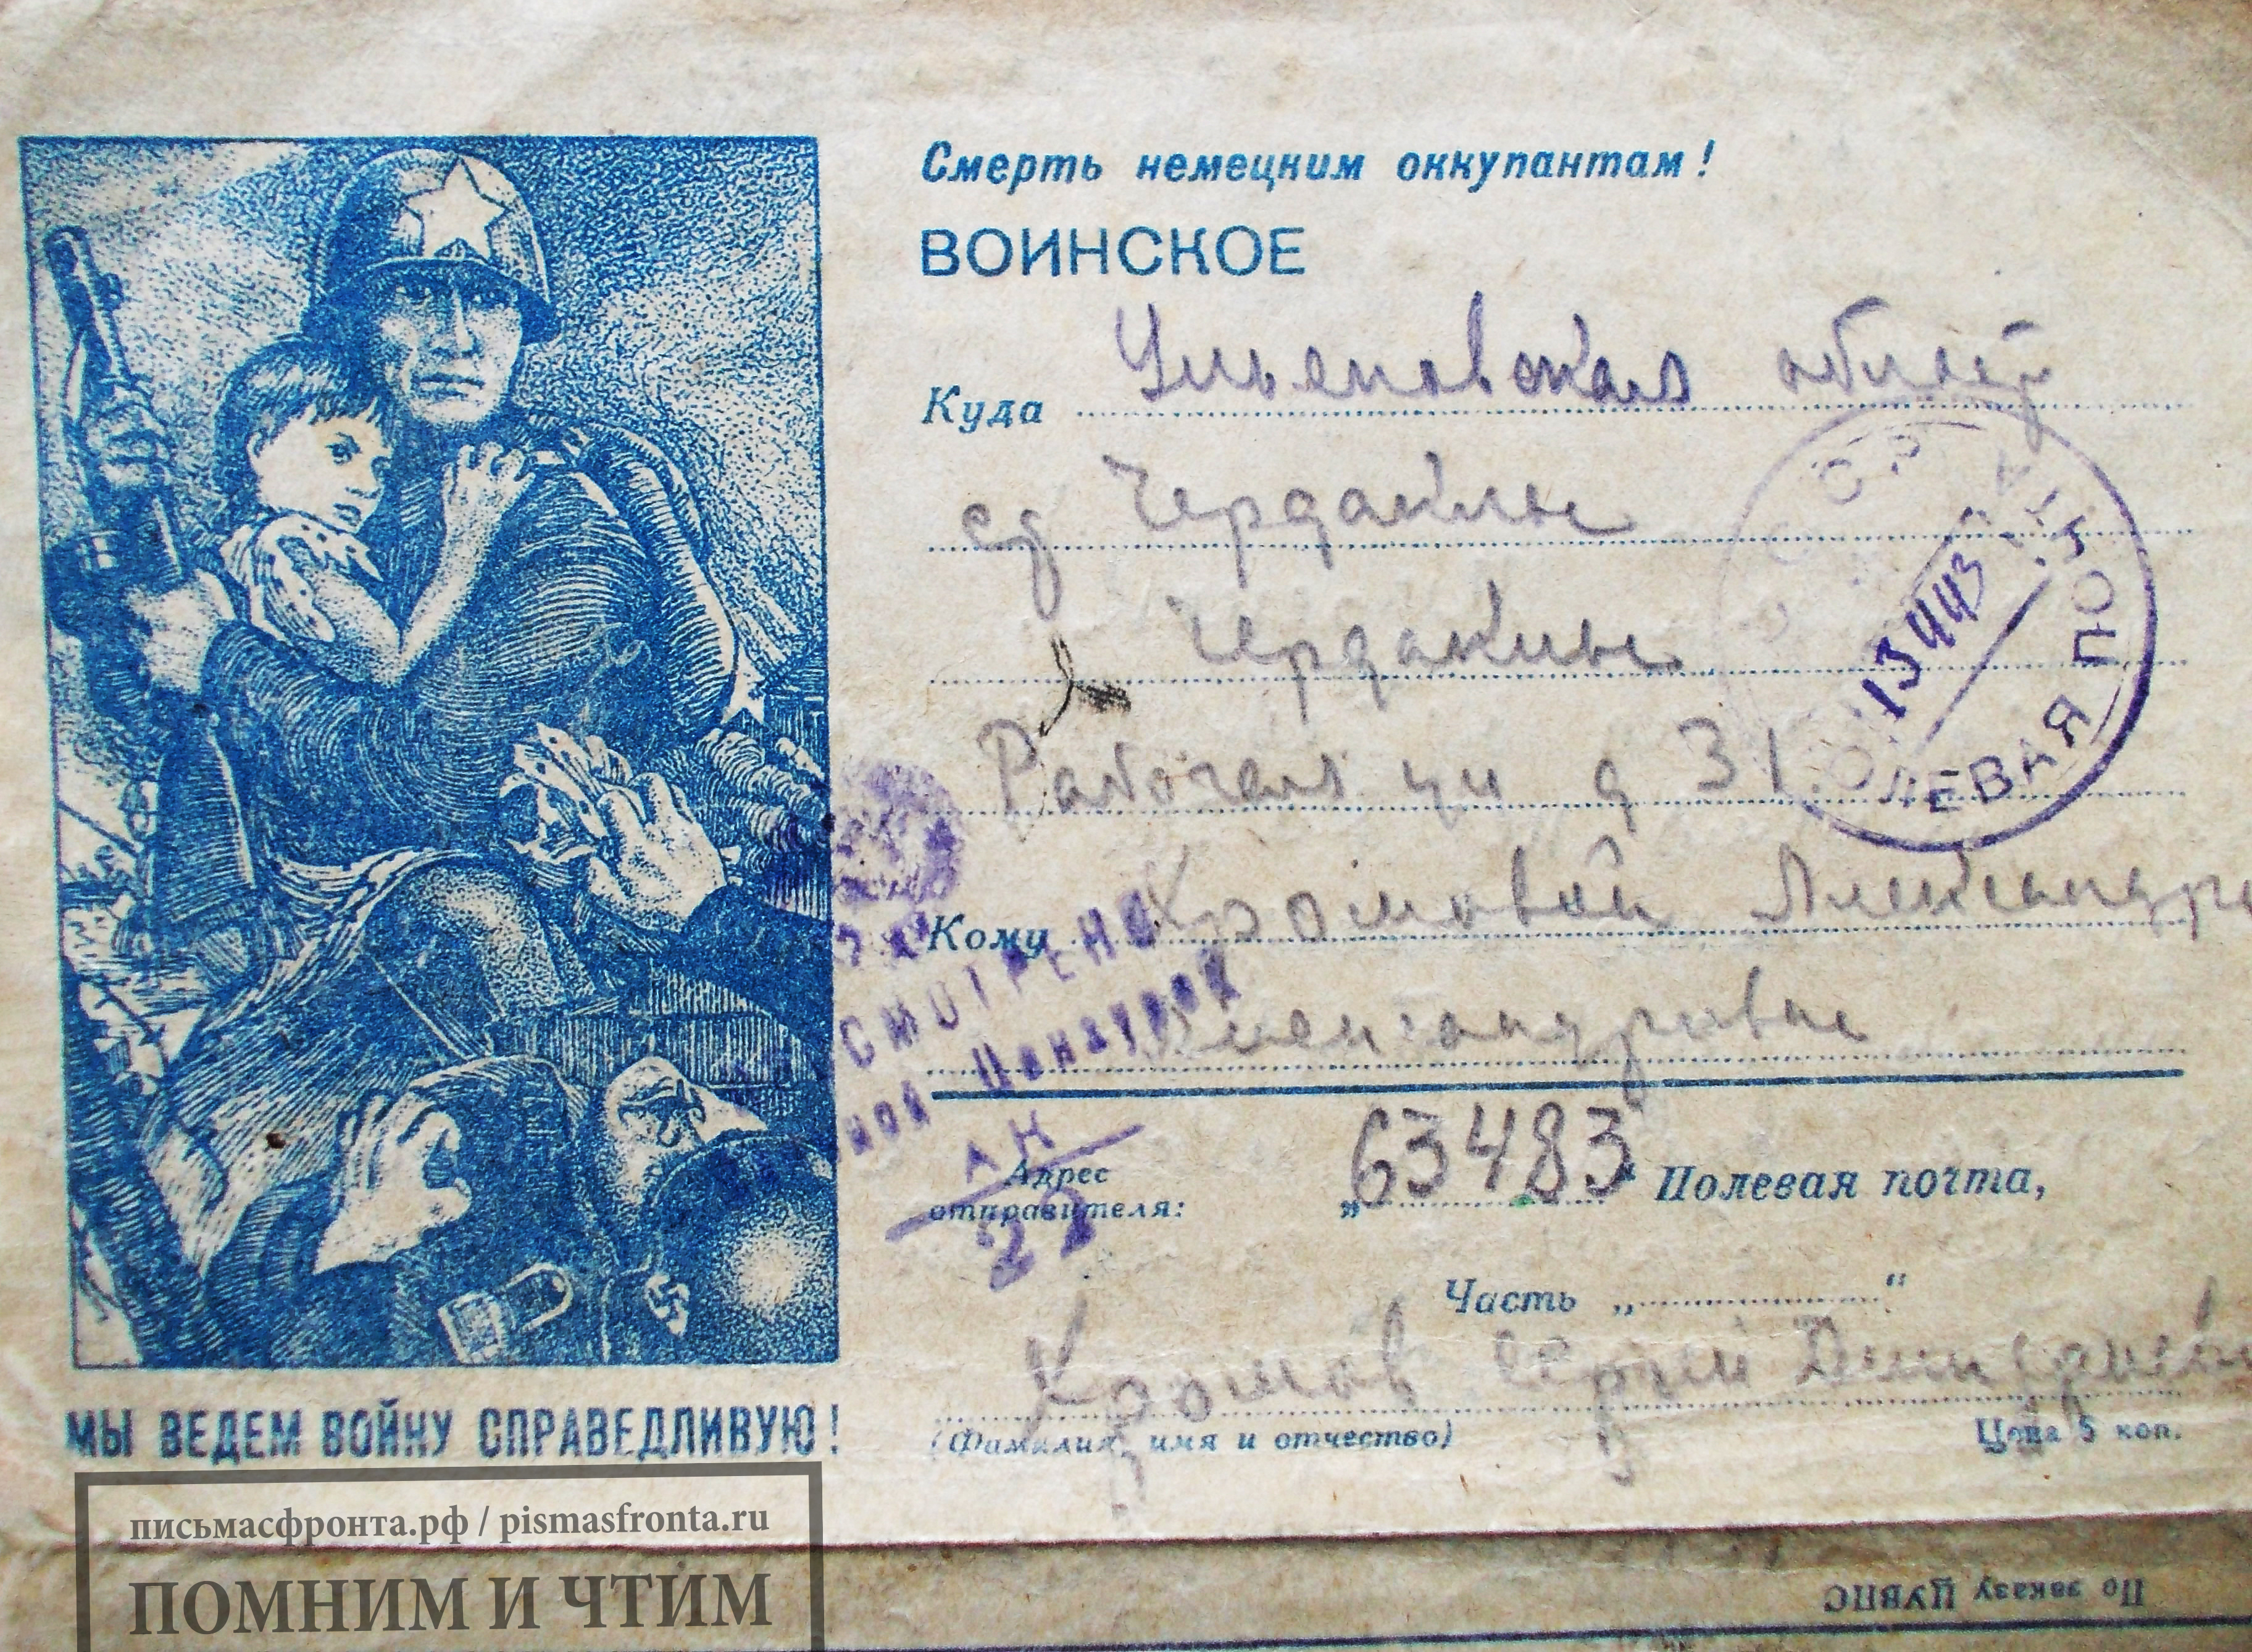 Смерть немецким оккупантам!
ВОИНСКОЕ
Куда Ульяновская област
ст Чердаклы
Чердаклы
Рабочая ул д 31
Кому Хромовой Александре
Александровне
Адрес
отправителя:
„63483“ Полевая почта,
Часть „ “
Хромов Сергей
(Фамилия, имя и отчество)
Цена 5 коп.
СССР
ПОЛЕВАЯ ПОЧТ
13 4 43
СМОТРЕНО
ной Цензурой
22
МЫ ВЕДЕМ ВОЙНУ СПРАВЕДЛИВУЮ!
письмасфронта.рф / pismasfronta.ru
ПОМНИМ И ЧТИМ
По заказу ЦУВПС